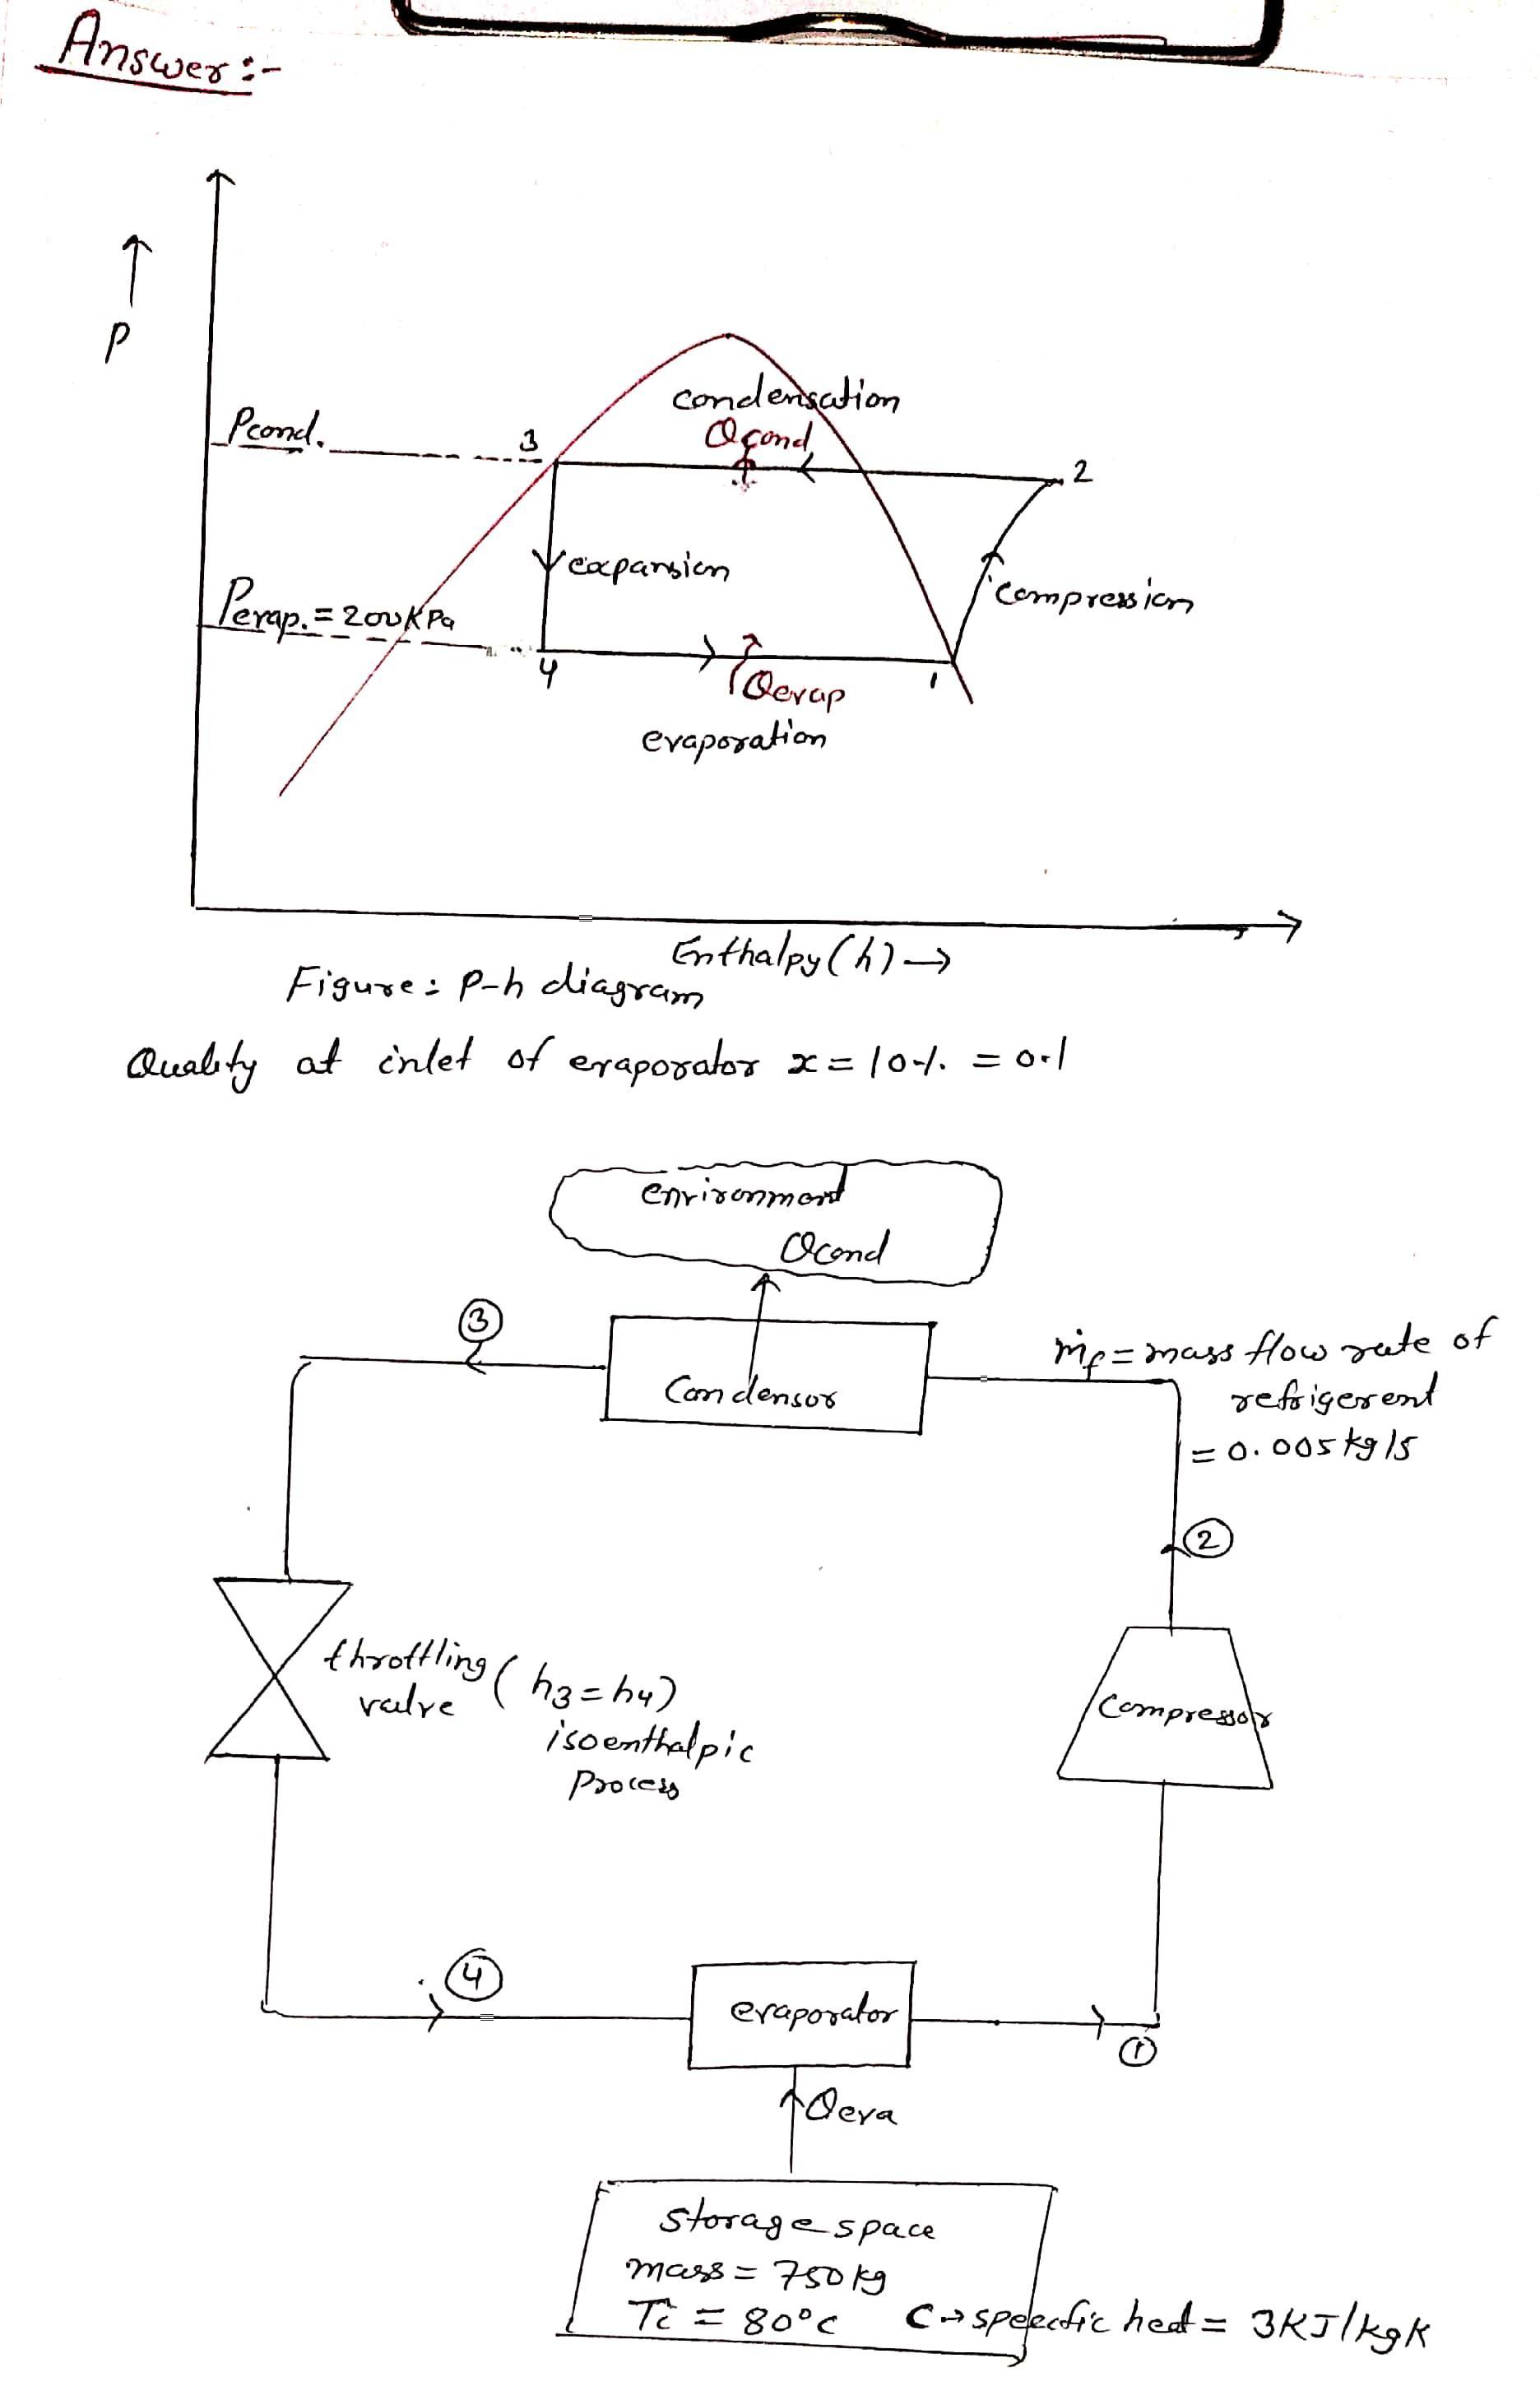 Answer :-
↑
P
Pcond.
3
condensation
Qcond
2
expansion
compression
Pevap. = 200 KPa
4
Qevap
1
evaporation
Enthalpy (h) →
Figure : P-h diagram
Quality at inlet of evaporator x = 10% = 0.1
environment
Qcond
3
Condensor
ṁf = mass flow rate of
refrigerent
= 0.005 kg/s
2
throttling (h3 = h4)
valve
isoenthalpic
Process
Compressor
4
evaporator
1
Qeva
Storage space
mass = 750 kg
Ti = 80°C C → speecfic heat = 3 KJ/kgK